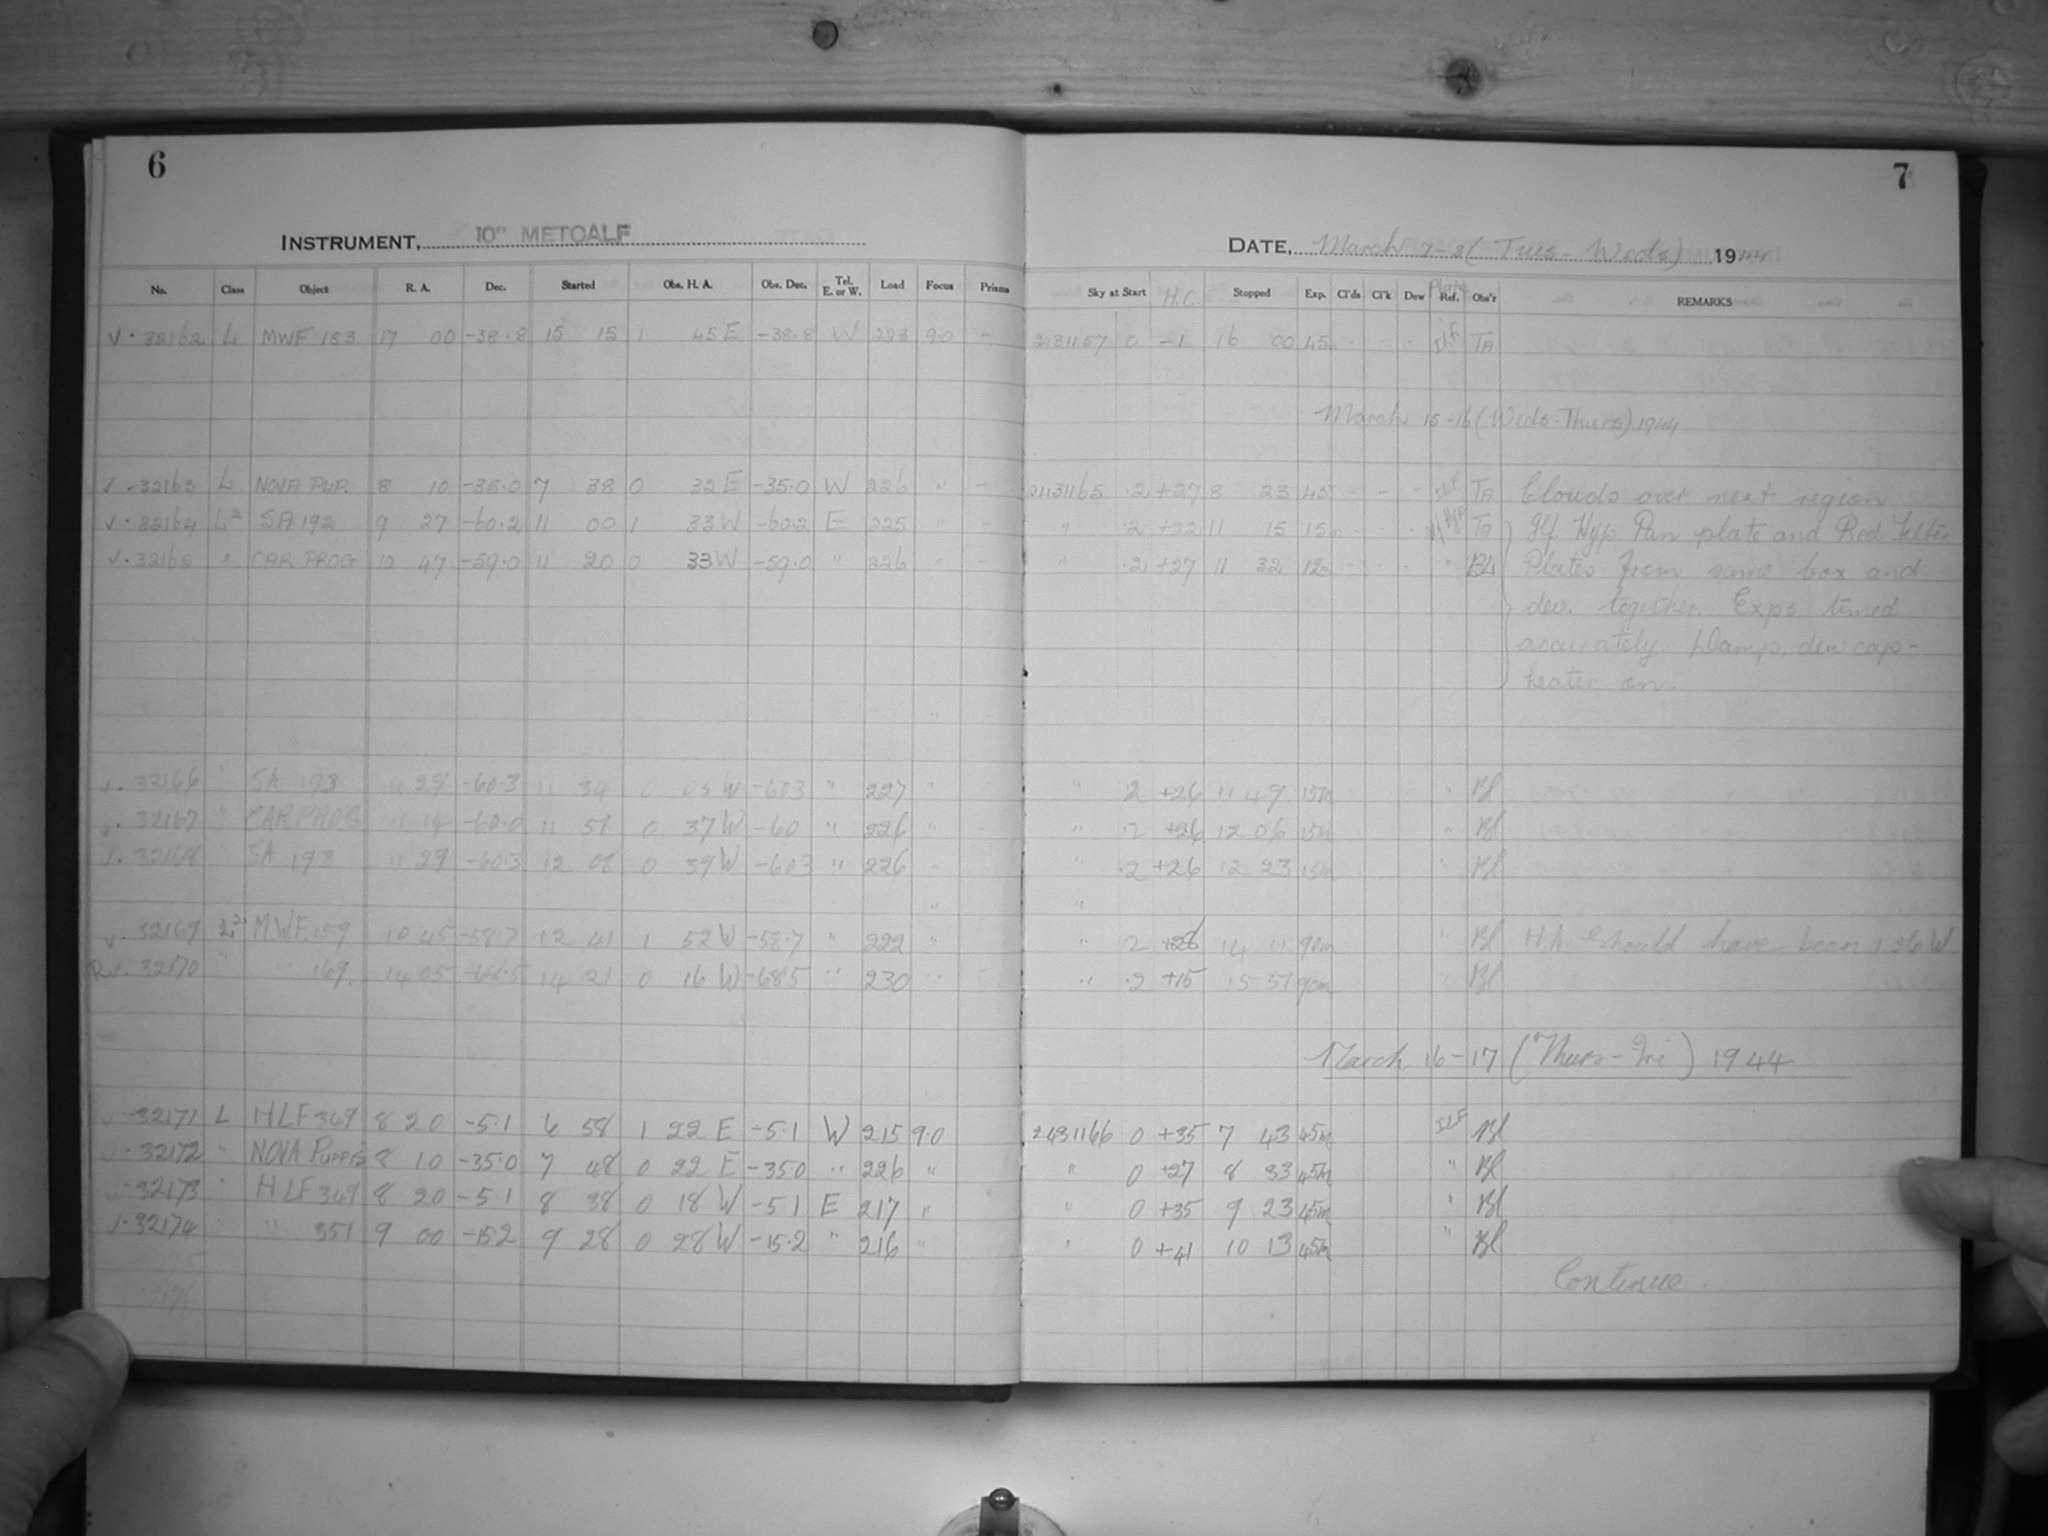 6
7
INSTRUMENT, 10" METCALF
DATE, March 7-8 (Tues - Weds) 1944
No. Class Object R. A. Dec. Started Obs. H. A. Obs. Dec. Tel. E. or W. Load Focus Prisms Sky at Start H.C. Stopped Exp. Cl'ds Cl'k Dew Plate Ref. Obs'r REMARKS
√ · 32162 L MWF 183 17 00 -38.8 15 15 1 45 E -38.8 W 223 9.0 - 2431157 0 -1 16 00 45m - - - TB
March 15-16 (Weds-Thurs) 1944
√ · 32163 L NOVA PUP. 8 10 -35.0 7 38 0 32 E -35.0 W 226 " - 2431165 .2 +27 8 23 45 - - - ILF TB Clouds over next region
√ · 32164 L² SA 192 9 27 -60.2 11 00 1 33 W -60.2 E 225 " - " .2 +22 11 15 15m - - - TB Ilf. Hyp. Pan plate and Red Filter
√ · 32165 " CAR PROG 10 47 -59.0 11 20 0 33 W -59.0 " 226 - - " .2 +27 11 32 12m - - - " BL Plates from same box and
dev. together. Exps timed
accurately. Damp. dew cap-
heater on.
"
√ · 32166 " SA 193 " 29 -60.3 11 34 0 05 W -60.3 " 227 " " .2 +26 11 49 15m " Bl
√ · 32167 " CAR PROG " 14 -60.0 11 51 0 37 W -60 " 226 " - " .2 +26 12 06 15m " Bl
√ · 32168 " SA 193 " 29 -60.3 12 08 0 39 W -60.3 " 226 " " .2 +26 12 23 15m " Bl
" "
√ · 32169 L² MWF. 159 10 45 -58.7 12 41 1 52 W -58.7 " 222 " " .2 +28 14 11 90m " Bl H.A. should have been 1 36 W
√ · 32170 " " 169 14 05 -68.5 14 21 0 16 W -68.5 " 230 " " .2 +15 15 51 90m " Bl
March 16-17 (Thurs-Fri) 1944
√ · 32171 L HLF 349 8 20 -5.1 6 58 1 22 E -5.1 W 215 9.0 2431166 0 +35 7 43 45m ILF Bl
√ · 32172 " NOVA PUPPIS 8 10 -35.0 7 48 0 22 E -35.0 " 226 " " 0 +27 8 33 45m " Bl
32173 " HLF 349 8 20 -5.1 8 38 0 18 W -5.1 E 217 " " 0 +35 9 23 45m " Bl
√ · 32174 " " 351 9 00 -15.2 9 28 0 28 W -15.2 " 216 " " 0 +41 10 13 45m " Bl
Continue.